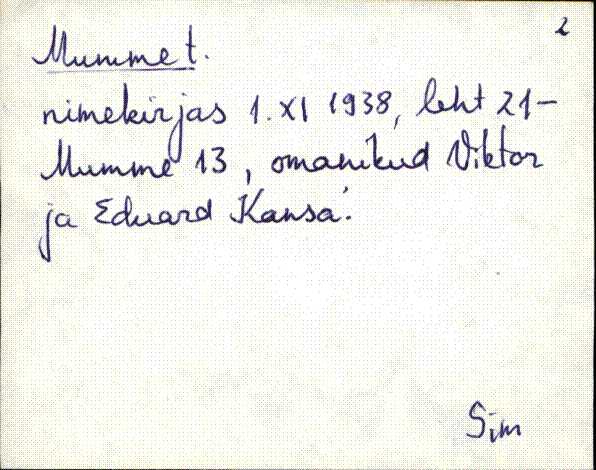 2
Mumme t.
nimekirjas 1. XI 1938, leht 21-
Mumme 13, omanikud Viktor
ja Eduard Kansa.
Sim